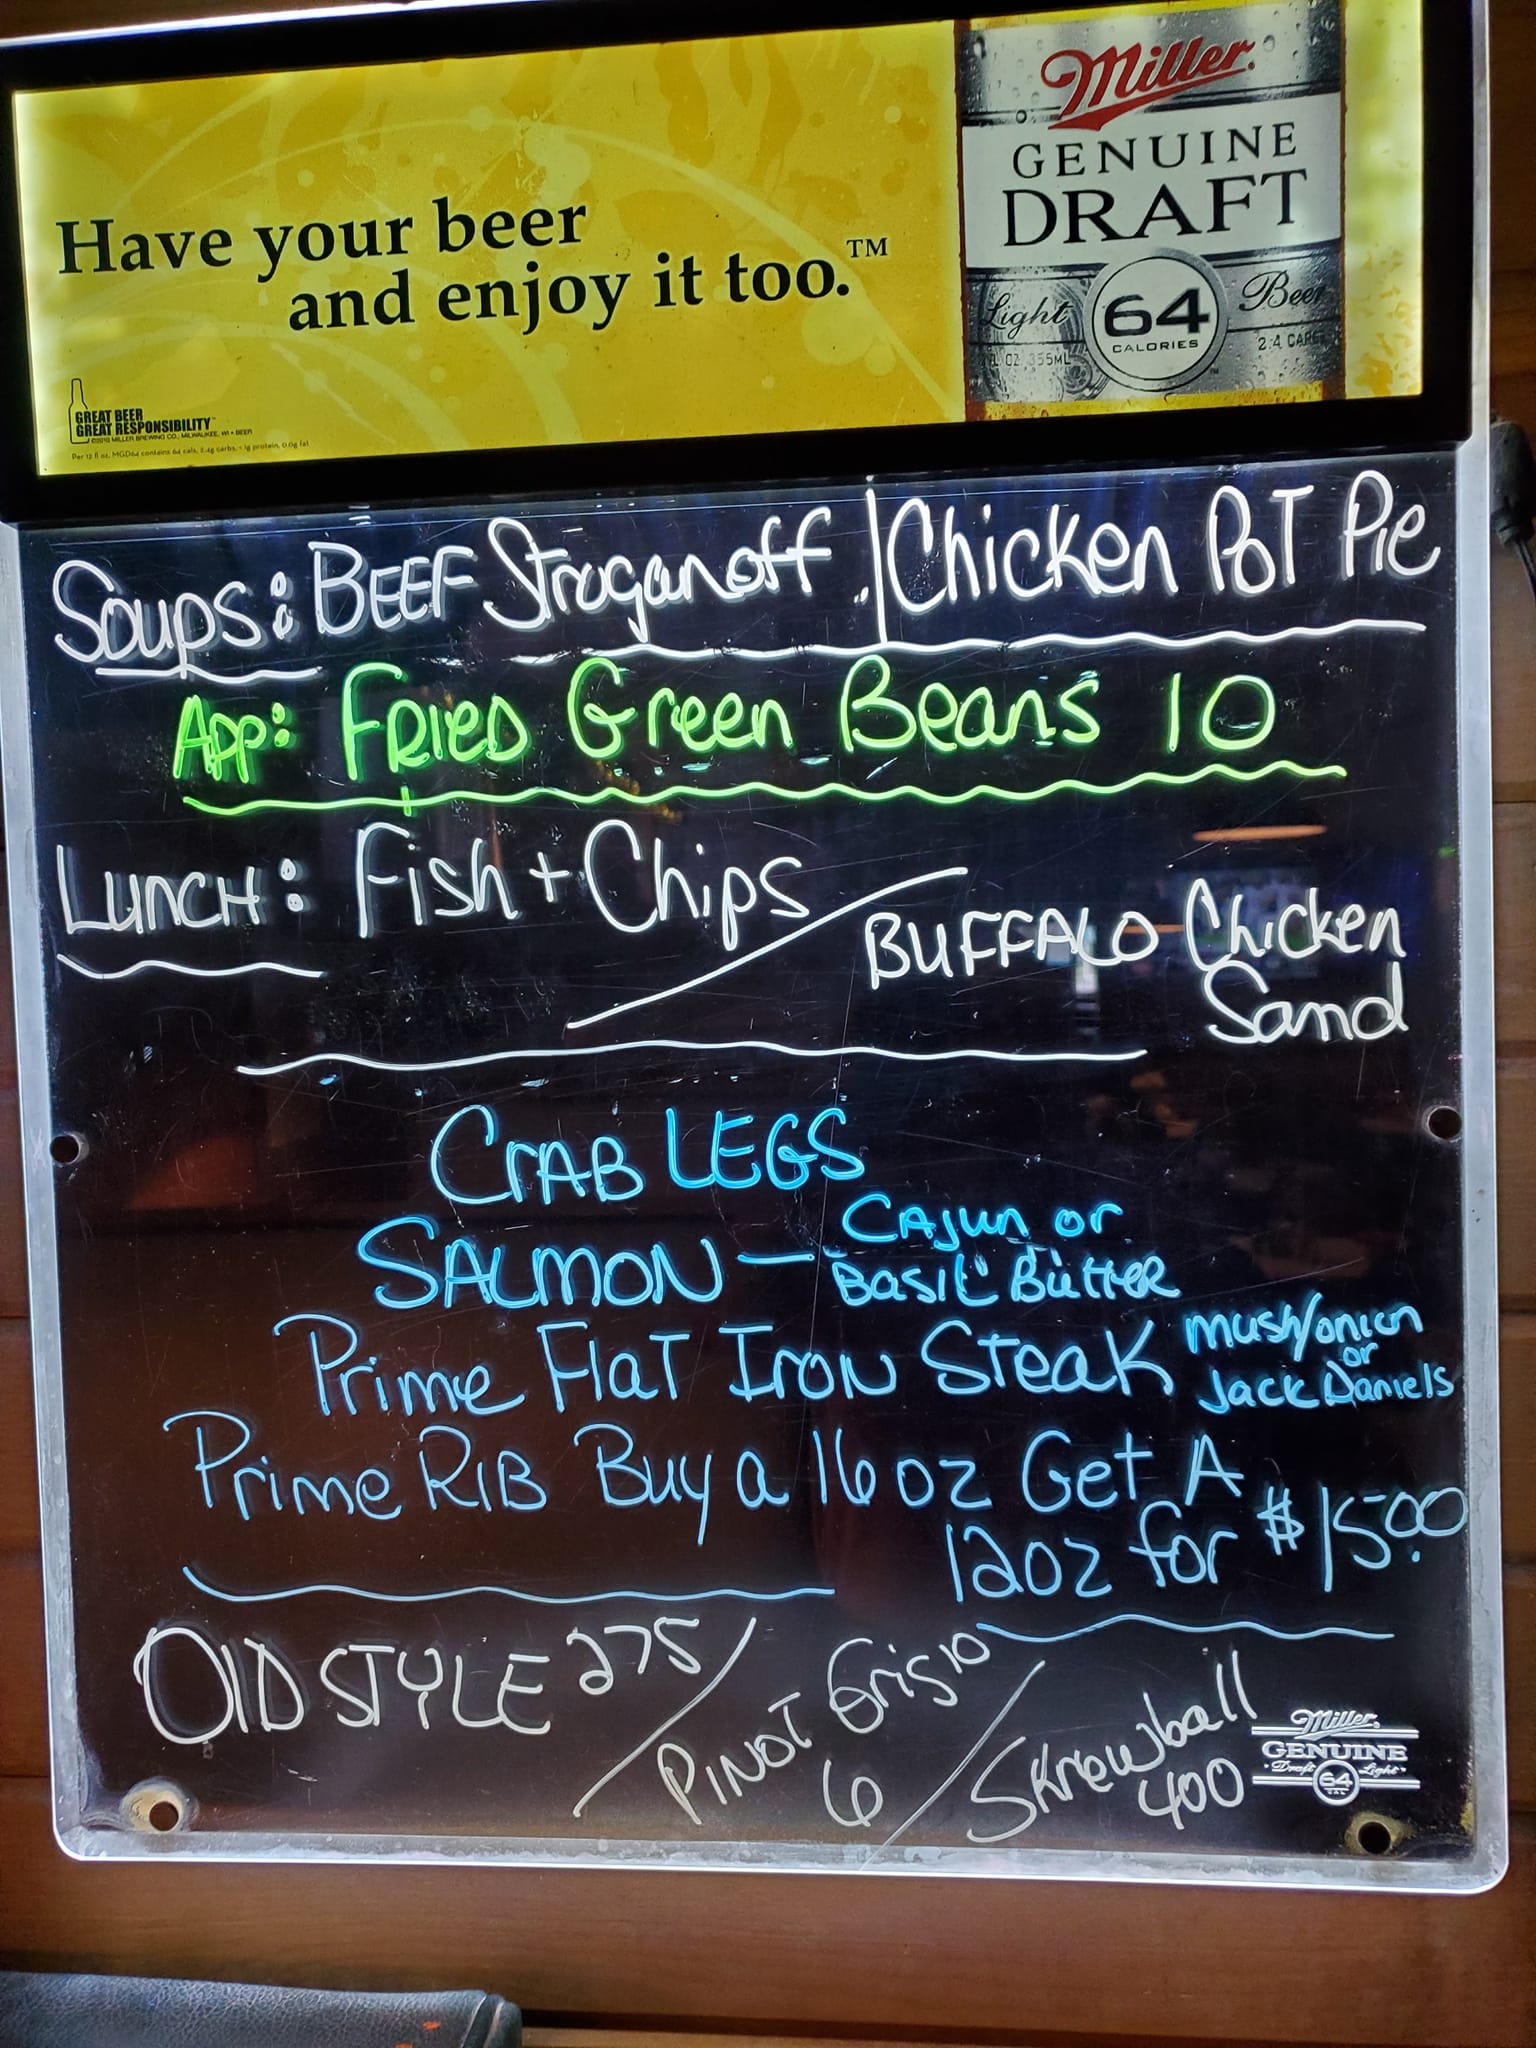 Miller
GENUINE
DRAFT
Light 64 Beer
CALORIES
OZ. 355ML
2.4 CARBS
Have your beer
and enjoy it too.™
GREAT BEER
GREAT RESPONSIBILITY™
©2010 MILLER BREWING CO., MILWAUKEE, WI • BEER
Per 12 fl oz, MGD64 contains 64 cals, 2.4g carbs, <1g protein, 0.0g fat
Soups: BEEF Stroganoff | Chicken Pot Pie
App: Fried Green Beans 10
Lunch: Fish + Chips / BUFFALO Chicken
Sand
CRAB LEGS
SALMON — CAJUN or
Basil Butter
Prime Flat Iron Steak mush/onion
or
Jack Daniels
Prime RIB Buy a 16 oz Get A
12oz for $15.00
Old STYLE 275 / PINOT Grisio / Skrewball
6 400
Miller
GENUINE
Draft 64 Light
CAL